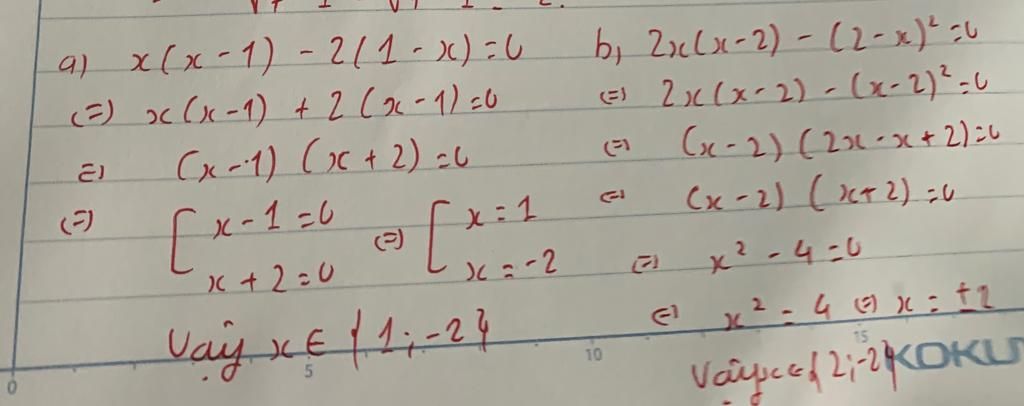 a) x(x-1) - 2(1-x)=0
(=) x(x-1) + 2(x-1)=0
(=) (x-1) (x+2)=0
(=) [ x-1=0 (=) [ x=1
x+2=0 x=-2
Vậy x ∈ {1;-2}
b, 2x(x-2) - (2-x)²=0
(=) 2x(x-2) - (x-2)²=0
(=) (x-2)(2x-x+2)=0
(=) (x-2) (x+2)=0
(=) x² - 4=0
(=) x² = 4 (=) x = ±2
Vậy x ∈ {2;-2}
0 5 10 15 KOKU